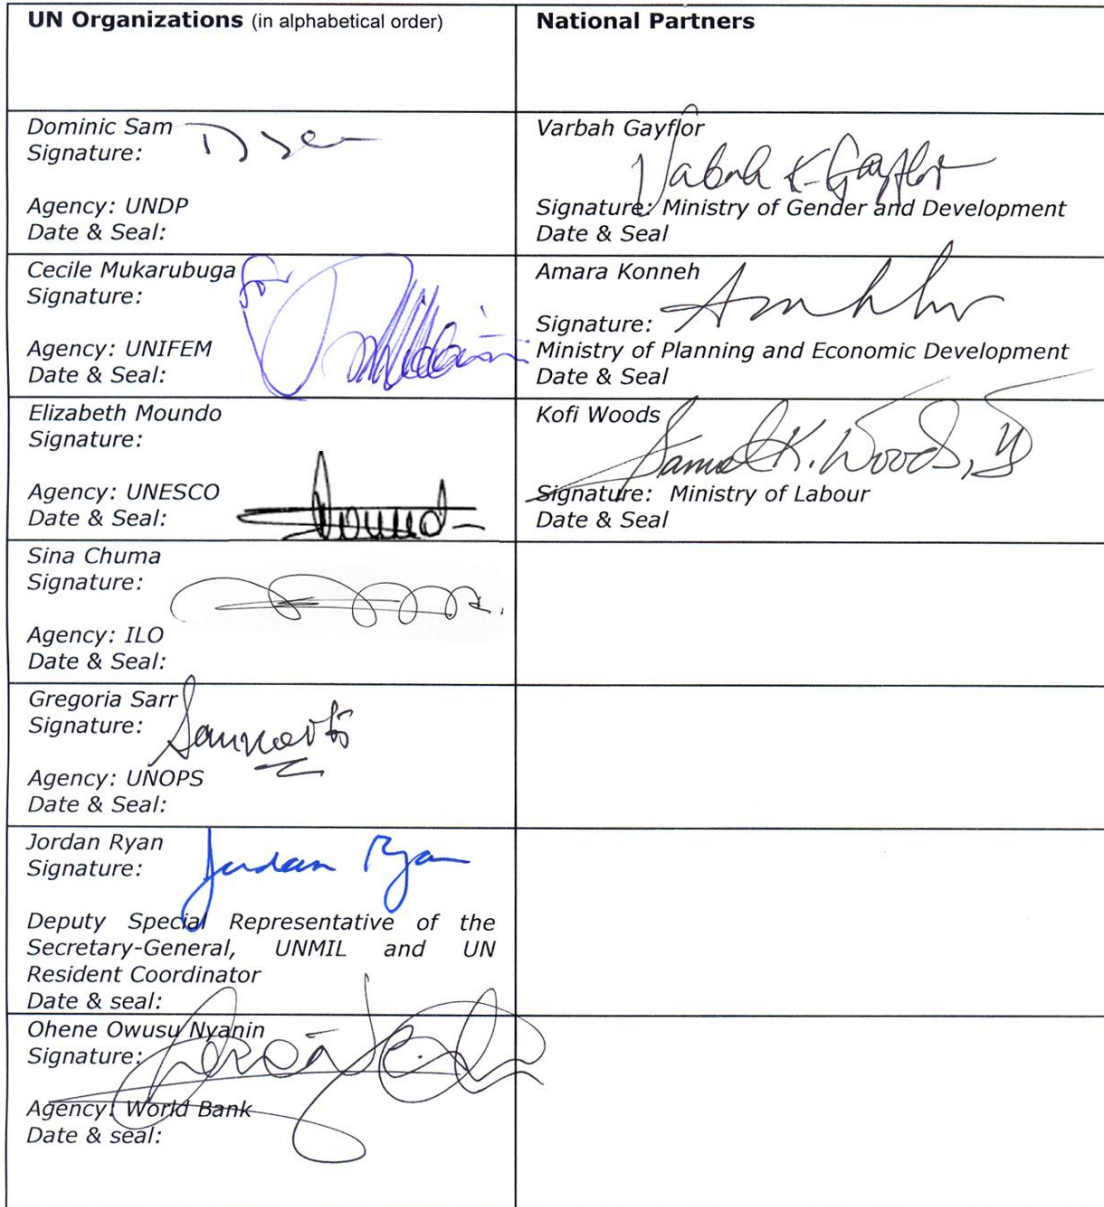 UN Organizations (in alphabetical order)
National Partners
Dominic Sam
Signature:
Agency: UNDP
Date & Seal:
Varbah Gayflor
Varbah K. Gayflor
Signature: Ministry of Gender and Development
Date & Seal
Cecile Mukarubuga
for
Signature:
Agency: UNIFEM
Date & Seal:
Amara Konneh
Signature:
Ministry of Planning and Economic Development
Date & Seal
Elizabeth Moundo
Signature:
Agency: UNESCO
Date & Seal:
Kofi Woods
Samuel K. Woods, II
Signature: Ministry of Labour
Date & Seal
Sina Chuma
Signature:
Agency: ILO
Date & Seal:
Gregoria Sarr
Signature:
Agency: UNOPS
Date & Seal:
Jordan Ryan
Signature: Jordan Ryan
Deputy Special Representative of the
Secretary-General, UNMIL and UN
Resident Coordinator
Date & seal:
Ohene Owusu Nyanin
Signature:
Agency: World Bank
Date & seal: